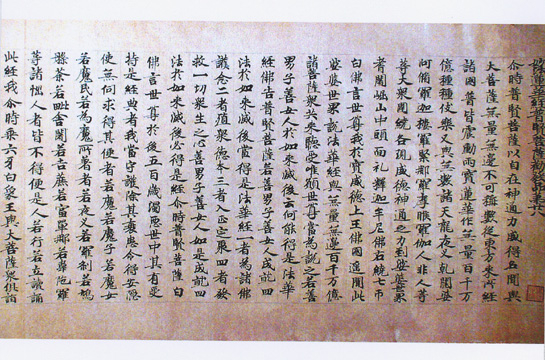 妙法蓮華經普賢菩薩勸發品第廿八
尒時普賢菩薩以自在神通力威德名聞與
大菩薩無量無邊不可稱數從東方來所經
諸國普皆震動雨寶蓮華作無量百千万
億種種伎樂又與無數諸天龍夜叉乹闥婆
阿脩羅迦樓羅緊那羅摩睺羅伽人非人等
大衆圍繞各現威德神通之力到娑婆世界
耆闍崛山中頭面礼釋迦牟尼佛右繞七帀
白佛言世尊我於寶威德上王佛國遥聞此
娑婆世界說法華經與無量無邊百千万億
諸菩薩衆共來聽受唯願世尊當為說之若善
男子善女人於如來滅後云何能得是法華
經佛告普賢菩薩若善男子善女人成就四
法於如來滅後當得是法華經一者為諸佛
護念二者殖衆德本三者入正定聚四者發
救一切衆生之心善男子善女人如是成就四
法於如來滅後必得是經尒時普賢菩薩白
佛言世尊於後五百歲濁惡世中其有受
持是經典者我當守護除其衰患令得安隱
使無伺求得其便者若魔若魔子若魔女
若魔民若為魔所著者若夜叉若羅刹若鳩
槃荼若毗舍闍若吉蔗若富單那若韋陁羅
等諸惱人者皆不得便是人若行若立讀誦
此經我尒時乘六牙白象王與大菩薩衆俱詣